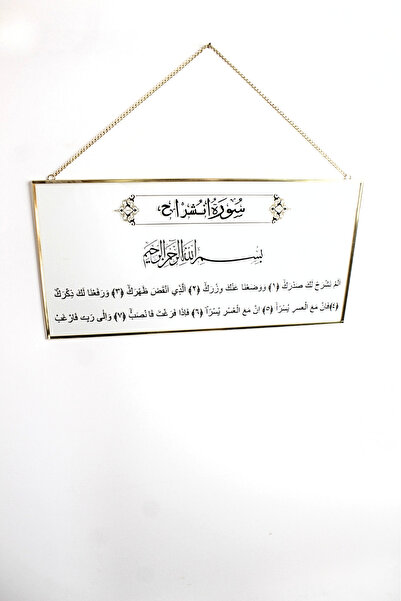 سورة انشراح
بسم الله الرحمن الرحيم
اَلَمْ نَشْرَحْ لَكَ صَدْرَكَ (١) وَوَضَعْنَا عَنْكَ وِزْرَكَ (٢) اَلَّذِي اَنْقَضَ ظَهْرَكَ (٣) وَ رَفَعْنَا لَكَ ذِكْرَكَ
(٤) فَاِنَّ مَعَ الْعُسْرِ يُسْرًا (٥) اِنَّ مَعَ الْعُسْرِ يُسْرًا (٦) فَاِذَا فَرَغْتَ فَانْصَبْ (٧) وَاِلٰى رَبِّكَ فَارْغَبْ